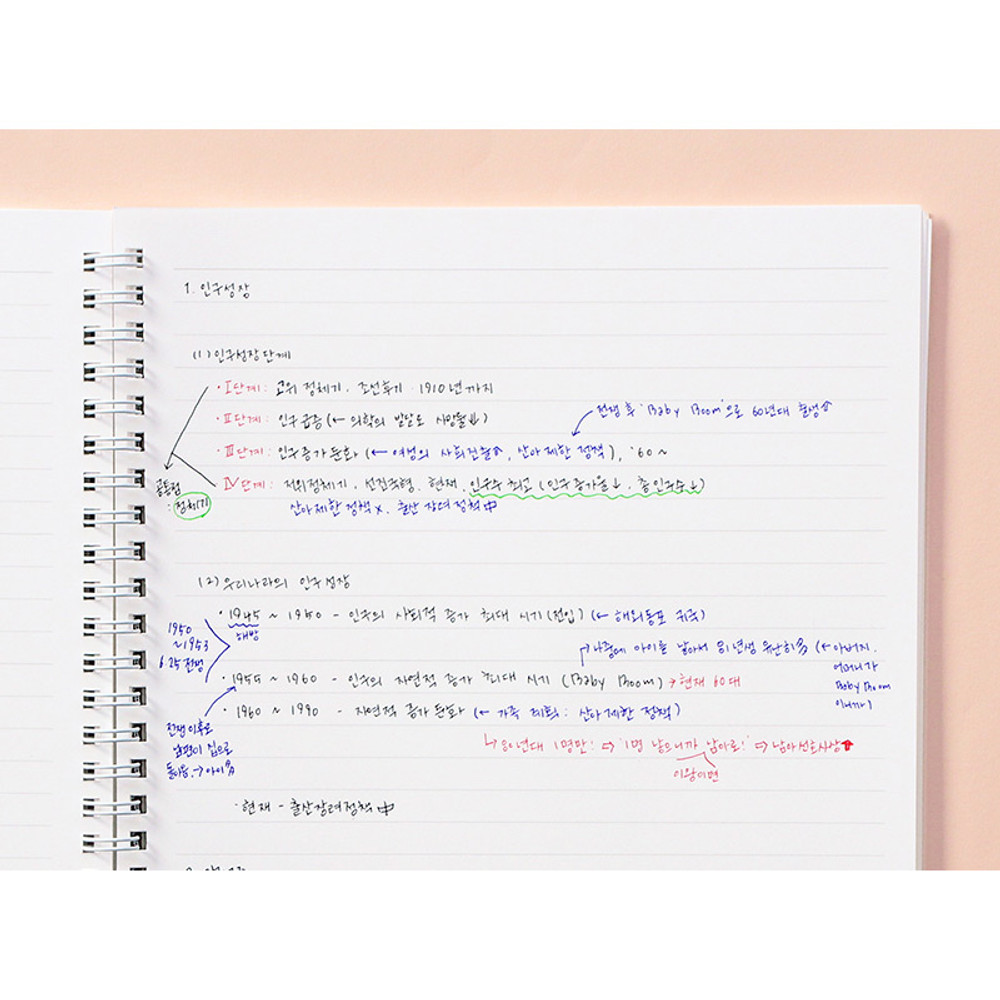 1. 인구성장
(1) 인구성장단계
· I단계 : 고위 정체기. 조선후기. 1910년까지
· II단계 : 인구 급증 (← 의학의 발달로 사망률↓)
전쟁 후 'Baby Boom'으로 60년대 출생↑
· III단계 : 인구증가 둔화 (← 여성의 사회진출↑, 산아제한 정책), '60~
· IV단계 : 저위정체기. 선진국형. 현재. 인구수 최고 (인구증가율↓. 총인구수↓)
공통점
: 정체기
산아제한정책 x. 출산 장려 정책 中
(2) 우리나라의 인구성장
· 1945 ~ 1950 - 인구의 사회적 증가 최대 시기 (전입) (← 해외동포 귀국)
해방
1950
~1953
6.25전쟁
나중에 아이를 낳아서 81년생 유난히多 (← 아버지.
어머니가
Baby Boom
이니까)
· 1955 ~ 1960 - 인구의 자연적 증가 최대 시기 (Baby Boom) → 현재 60대
· 1960 ~ 1990 - 자연적 증가 둔화 (← 가족 계획 : 산아제한 정책)
전쟁 이후로
남편이 집으로
돌아옴. → 아이多
↳ 80년대 1명만! ⇨ '1명 낳으니까 남아로!' ⇨ 남아선호사상↑
이왕이면
· 현재 - 출산장려정책 中